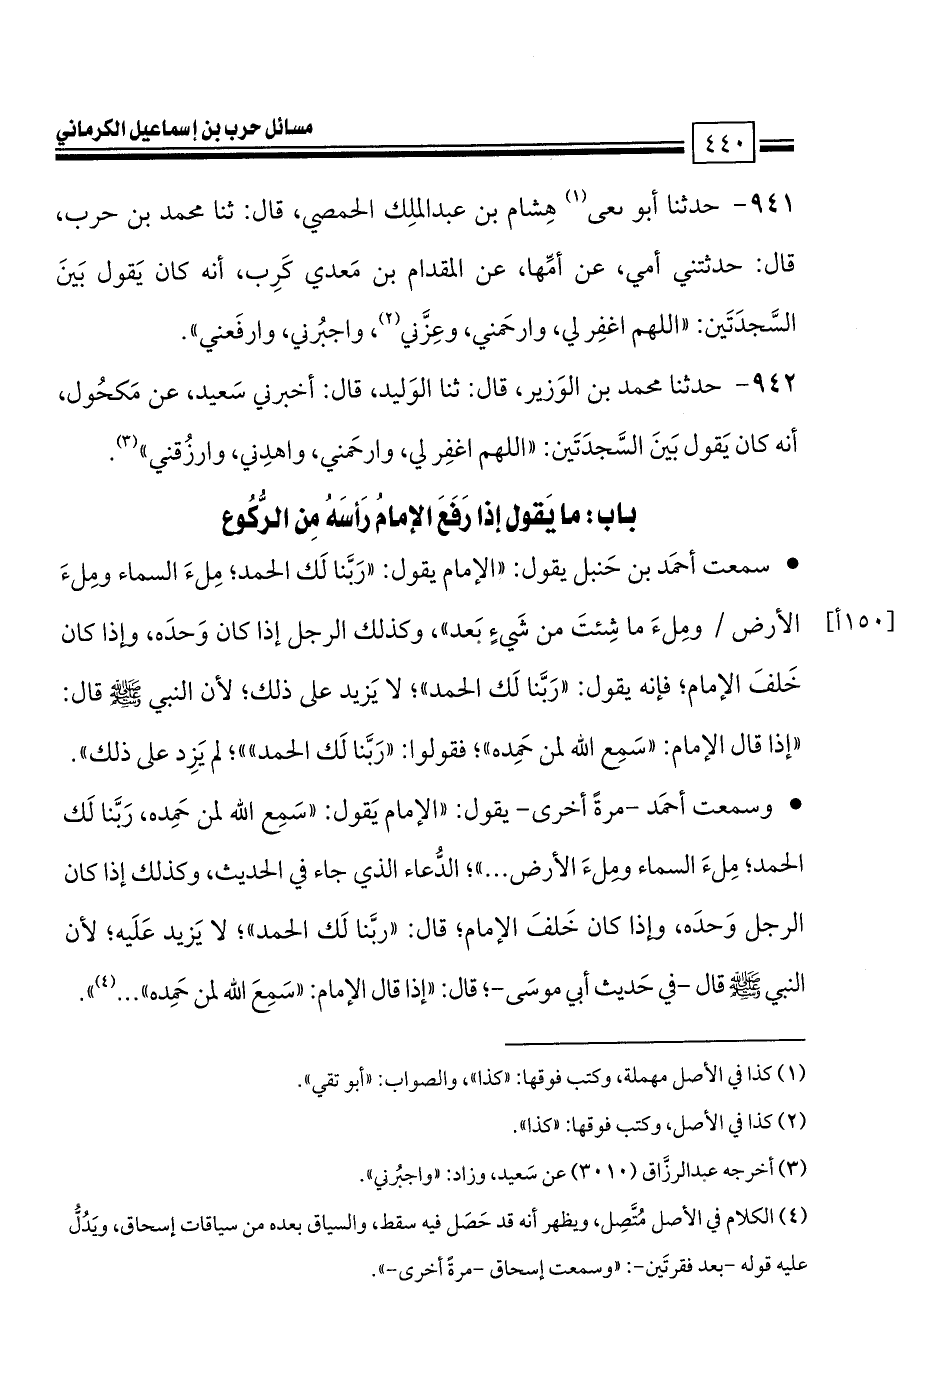 مسائل حرب بن إسماعيل الكرماني
٤٤٠
٩٤١- حدثنا أبو ىعى(١) هِشام بن عبدالملِك الحمصي، قال: ثنا محمد بن حرب،
قال: حدثتني أمي، عن أمِّها، عن المقدام بن مَعدي كَرِب، أنه كان يَقول بَينَ
السَّجدَتَين: «اللهم اغفِر لي، وارحَمني، وعِزَّني(٢)، واجبُرني، وارفَعني».
٩٤٢- حدثنا محمد بن الوَزير، قال: ثنا الوَليد، قال: أخبرني سَعيد، عن مَكحُول،
أنه كان يَقول بَينَ السَّجدَتَين: «اللهم اغفِر لي، وارحَمني، واهدِني، وارزُقني»(٣).
باب: ما يَقول إذا رَفَعَ الإمامُ رَأسَهُ مِن الرُّكُوع
● سمعت أحمَد بن حَنبل يقول: «الإمام يقول: «رَبَّنا لَك الحمد؛ مِلءَ السماء ومِلءَ
الأرض / ومِلءَ ما شِئتَ من شَيءٍ بَعد»، وكذلك الرجل إذا كان وَحدَه، وإذا كان
[١٥٠أ]
خَلفَ الإمام؛ فإنه يقول: «رَبَّنا لَك الحمد»؛ لا يَزيد على ذلك؛ لأن النبي ﷺ قال:
«إذا قال الإمام: «سَمِع الله لمن حَمِده»؛ فقولوا: «رَبَّنا لَك الحمد»»؛ لم يَزِد على ذلك».
● وسمعت أحمَد -مرةً أخرى- يقول: «الإمام يَقول: «سَمِع الله لمن حَمِده، رَبَّنا لَك
الحمد؛ مِلءَ السماء ومِلءَ الأرض...»؛ الدُّعاء الذي جاء في الحديث، وكذلك إذا كان
الرجل وَحدَه، وإذا كان خَلفَ الإمام؛ قال: «ربَّنا لَك الحمد»؛ لا يَزيد عَلَيه؛ لأن
النبي ﷺ قال -في حَديث أبي موسَى-؛ قال: «إذا قال الإمام: «سَمِعَ الله لمن حَمِده»...(٤)».
(١) كذا في الأصل مهملة، وكتب فوقها: «كذا»، والصواب: «أبو تقي».
(٢) كذا في الأصل، وكتب فوقها: «كذا».
(٣) أخرجه عبدالرزَّاق (٣٠١٠) عن سَعيد، وزاد: «واجبُرني».
(٤) الكلام في الأصل مُتَّصِل، ويظهر أنه قد حَصَل فيه سقط، والسياق بعده من سياقات إسحاق، ويَدُلُّ
عليه قوله -بعد فقرتَين-: «وسمعت إسحاق -مرةً أخرى-».